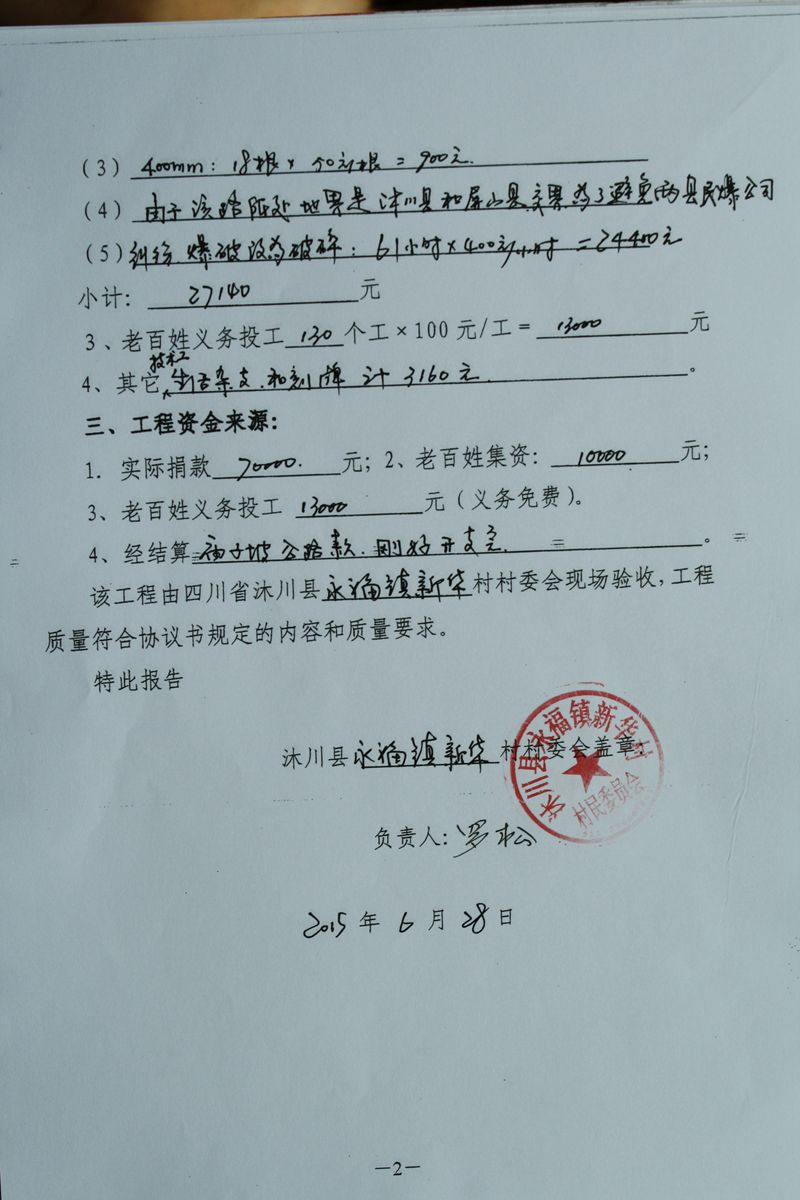 （3）400mm：18根×50元/根=900元
（4）由于该路段处地界是沐川县和屏山县交界为了避免两县民爆公司
（5）纠纷爆破改为破碎：61小时×400元/小时=24400元
小计：27140元
3、老百姓义务投工130个工×100元/工=13000元
技术工
4、其它生活杂支.和刻牌 计3160元.。
三、工程资金来源：
1．实际捐款70000.元；2、老百姓集资：10000元；
3、老百姓义务投工13000元（义务免费）。
4、经结算庙子坡公路款.刚好开支完.。
该工程由四川省沐川县永福镇新华村村委会现场验收，工程
质量符合协议书规定的内容和质量要求。
特此报告
沐川县永福镇新华村村委会盖章：
沐川县永福镇新华村
村民委员会
负责人：罗松
2015年6月28日
—2—